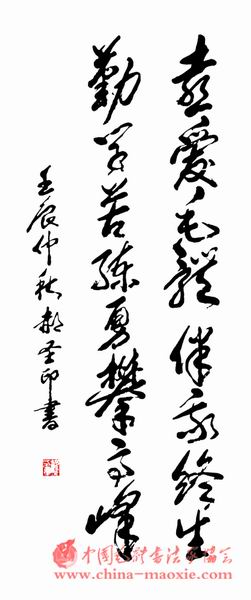 喜爱毛體伴我终生
勤学苦练勇攀高峰
壬辰仲秋郝圣印書
中国毛体书法家协会
www.china-maoxie.com